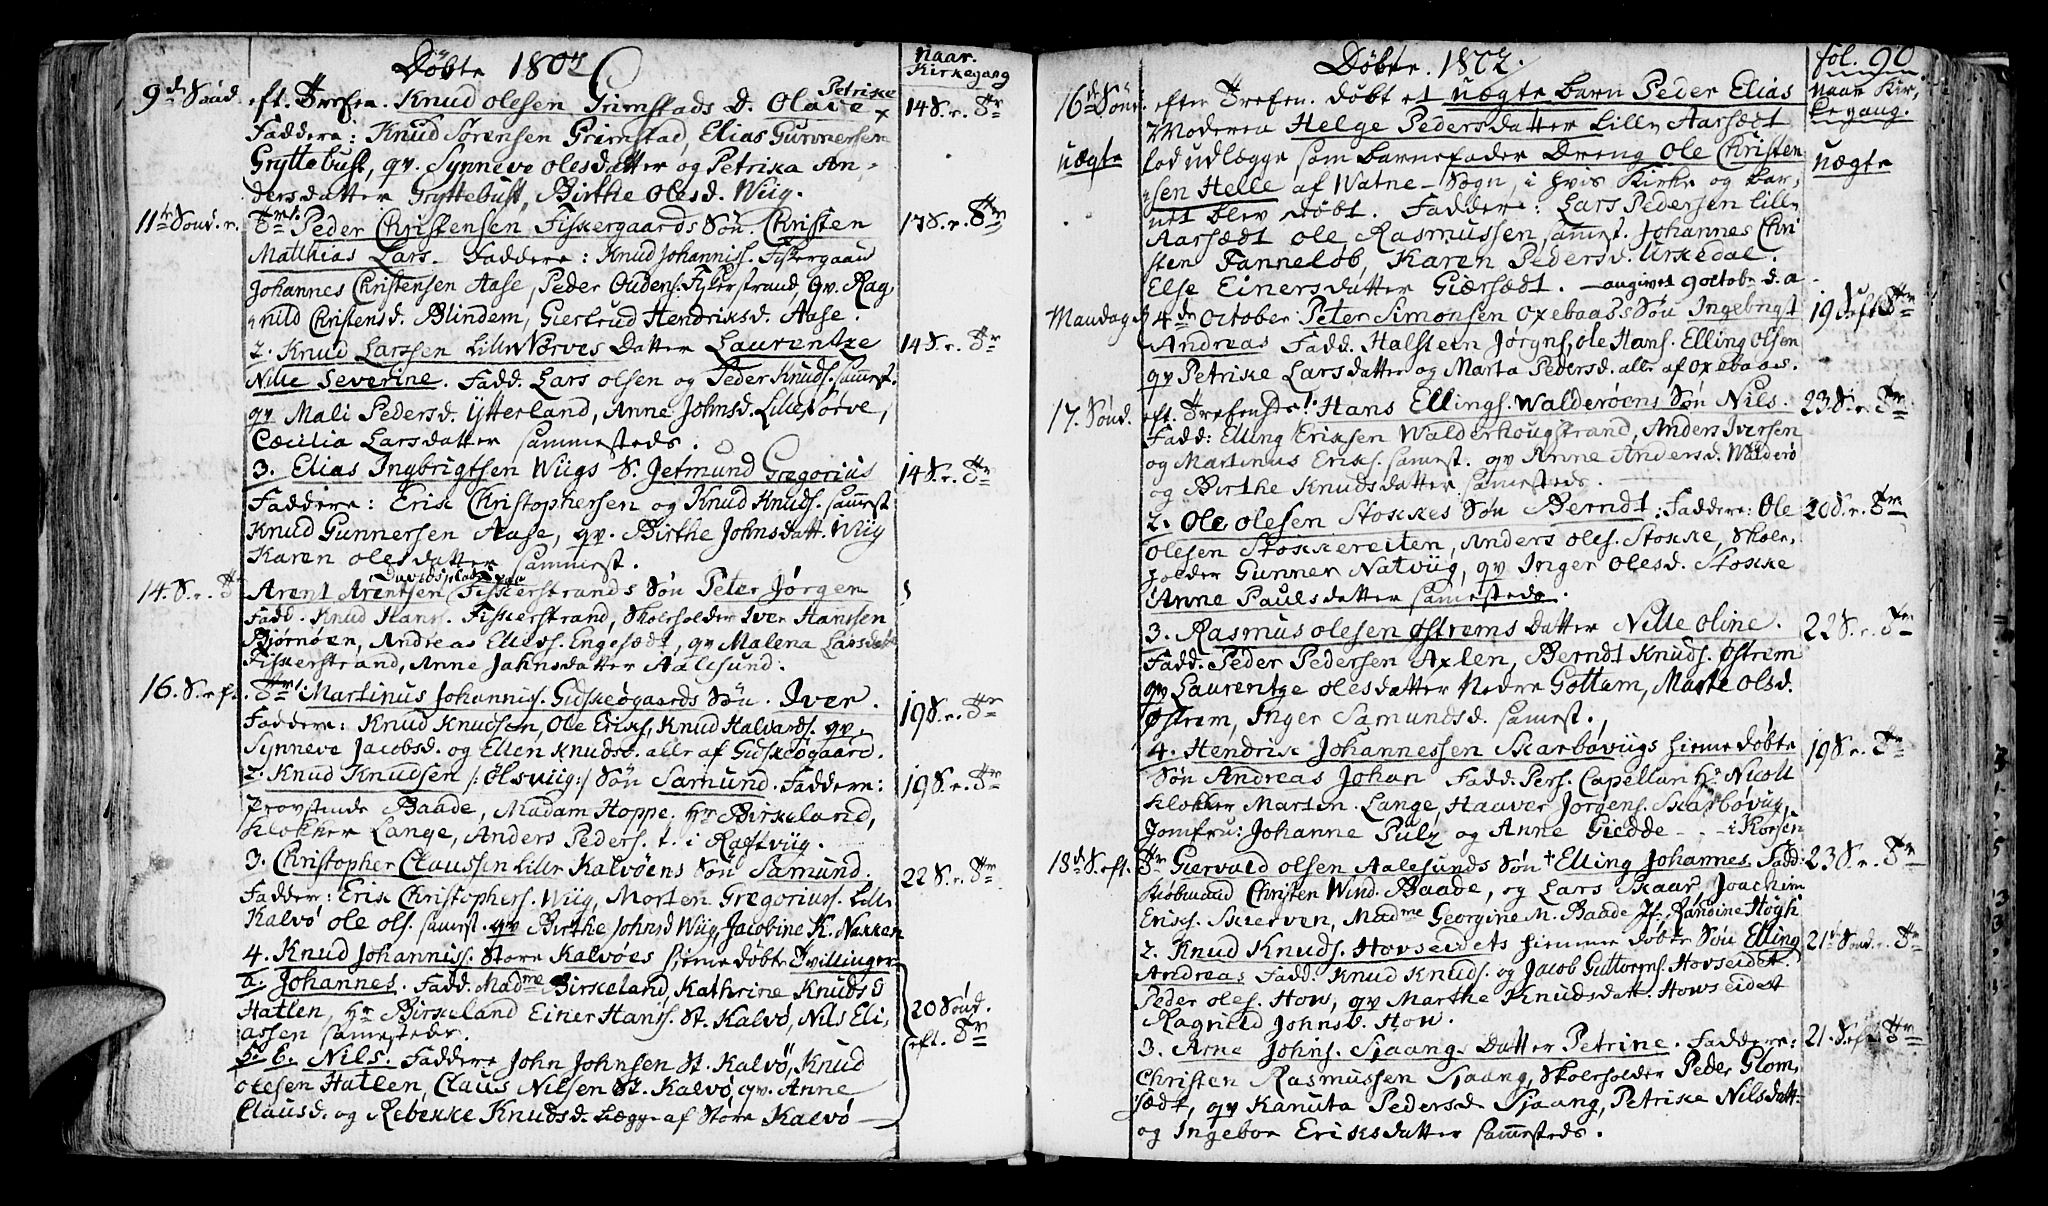 Döbte 1802
Naar Kirkegang
9de Sönd. eft. Trefen. Knud Olesen Grimstads D. Olave Petrike × 14 S. e. Tr
Faddere: Knud Sörensen Grimstad, Elias Gunnersen
Gryttebust, qv. Synneve Olesdatter og Petrika An-
dersdatter Gryttebust, Birthe Olesd. Wiig.
11te Sönd. e. Tr. 1. Peder Christensen Fiskergaards Sön. Christen 17 S. e. Tr
Matthias Lars. Faddere: Knud Johanniss. Fiskergaard
Johannes Christensen Aase, Peder Oudens. Fiskerstrand, qv. Rag-
nild Christensd. Blindem, Giertrud Hendriksd. Aase.
2. Knud Larssen Lille Nörves Datter Laurentze 14 S. e. Tr
Nille Severine. Fadd. Lars Olsen og Peder Knuds. samest.
qv Mali Pedersd. Ytterland, Anne Johnsd. Lillenörve,
Cæcilia Larsdatter sammesteds.
3. Elias Ingbrigtsen Wiigs S. Jetmund Gregorius 14 S. e. Tr
Faddere: Erik Christophersen og Knud Knuds. samest
Knud Gunnersen Aase, qv. Birthe Johnsdatt. Wiig
Karen Olesdatter sammest.
14. S. e. Tr Arent Arentsen Fiskerstrands Sön Peter Jörgen
Fadd. Knud Hans. Fiskerstrand, Skoleholder Iver Hanssen
Björnöen, Andreas Elleds. Engesædt, qv Malena Larsdatt
Fiskerstrand, Anne Jahnsdatter Aalesund.
16. S. eft. Tr 1. Martinus Johannis. Gidskeögaards Sön. Iver. 19 S. e. Tr
Faddere: Knud Knudsen, Ole Eriks, Knud Halvards. qv.
Synneve Jacobsd. og Ellen Knudsd. alle af Gidskeögaard.
2. Knud Knudsen /: Ölsviig :/ Sön Samund. Faddere: 19 S. e. Tr
Provstinde Baade, Madam Hoppe. Hr Birkeland,
Klokker Lange, Anders Peders. t. i Raftviig.
3. Christopher Claussen Lille Kalvöens Sön Samund. 22 S. e. Tr
Faddere: Erik Christophers. Wiig, Morten Gregorius. Lille
Kalvö Ole Ols. samest. qv Birthe Johnsd Wiig, Jacobine K. Nakken
4. Knud Johanniss. Store Kalvöes hiemedöbte Tvillinger
a. Johannes. Fadd. Madme Birkeland, Kathrine Knudsd
Hatlen, Hr Birkeland Einer Hanss. St. Kalvö, Nils Eli- 20 Sönd.
assen sammesteds. eft. Tr
5. b. Nils. Faddere John Johnsen St. Kalvö, Knud
Olesen Hatlen, Claus Nilsen St. Kalvö, qv. Anne
Clausd. og Rebekke Knudsd. begge af Store Kalvö
Döbte. 1802. fol. 90
Naar Kir-
ke gang.
16de Sönd. efter Trefen. döbt et uægte barn Peder Elias
Moderen Helge Pedersdatter Lille Aarsædt
uægte lod udlægge som barnefader Dreng Ole Christen uægte
sen Helle af Watne-Sogn, i hvis Kirke og bar-
net blev döbt. Faddere: Lars Pedersen Lille
Aarsædt Ole Rasmussen samest. Johannes Chri
sten Tanneløb, Karen Pedersd. Urkedal.
Else Einersdatter Giærsædt. – angivet 9 octobr d. a
Mandag d 4de October Peter Simonsen Oxebaass Sön Ingebrigt 19 S eft Tr
Andreas Fadd. Halsteen Jörgns, Ole Hans. Elling Olsen
qv Petrike Larsdatter og Marta Pedersd. alle af Oxebaas.
17. Sönd. eft. Trefend. 1. Hans Ellings. Walderöens Sön Nils. 23 S. e. Tr.
Fadd: Elling Eriksen Walderhougstrand, Anders Iversen
og Martinus Eriks. samest. qv Anne Andersd. Walderö
og Birthe Knudsdatter samesteds.
2. Ole Olesen Stokkes Sön Berndt: Faddere: Ole 20 S. e. Tr
Olesen Stokkereiten, Anders Oles. Stokke, Skole-
holder Gunner Natviig, qv Inger Olesd. Stokke
Anne Paulsdatter samesteds.
3. Rasmus Olesen Östrems Datter Nille Oline. 22 S. e. Tr
Fadd. Peder Pedersen Axlen, Berndt Knuds. Östrem
qv Laurentze Olesdatter Nedre Gottum, Marte Olsd.
Östrem, Inger Samundsd. samest.
4. Hendrik Johannessen Skarbövigs hiemedöbte 19 S. e. Tr
Sön Andreas Johan Fadd. Pers. Capellan Hr Nicoll
Klokker Morten Lange, Haaver Jörgens. Skarböviig,
Jomfru: Johanne Pulz og Anne Giedde - - - i Korsen
18de S. eft. Tr Giervald Olsen Aalesunds Sön + Elling Johannes. Fadd: 23 S. e. Tr
Kiöbmand Christen Wind Baade, og Lars Skaar, Joachim
Eriks. Skierven, Madme Georgine M. Baade Jf. Randine Högh
2. Knud Knuds. Hovseidets hiemme döbte Sön Elling 21de Sönd. e. Tr
Andreas Fadd. Knud Knuds. og Jacob Guttorms. Hovseidet.
Peder Oles. How, qv Marthe Knudsdatt. Howseidet
Ragnild Johnsd. How.
3. Arne Johns. Sjaangs Datter Petrine. Faddere: 21. S. eft. Tr
Christen Rasmussen Sjaang, Skoleholder Peder Glom-
sædt, qv Kanuta Pedersd Sjaang, Petrike Nilsdatt-
og Ingebor Eriksdatter samesteds.